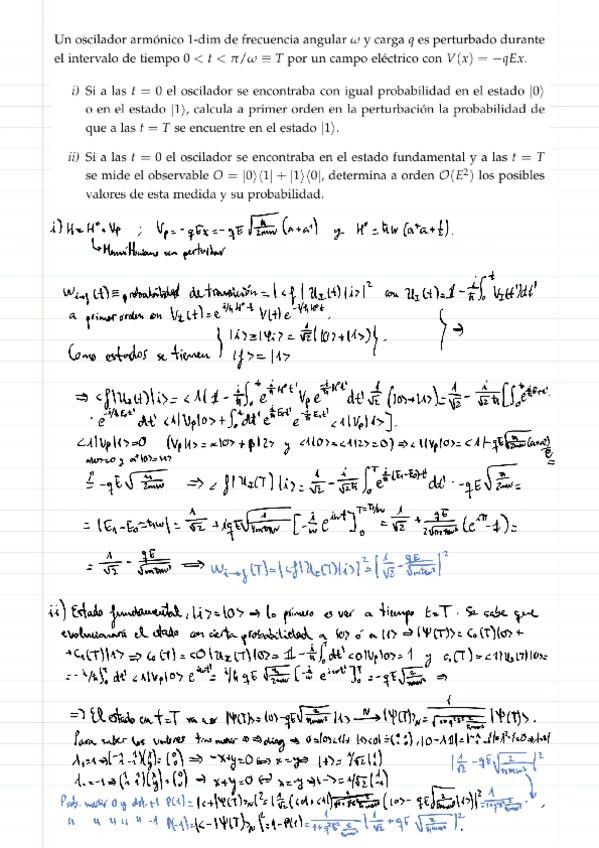 Un oscilador armónico 1-dim de frecuencia angular ω y carga q es perturbado durante
el intervalo de tiempo 0 < t < π/ω ≡ T por un campo eléctrico con V(x) = −qEx.
i) Si a las t = 0 el oscilador se encontraba con igual probabilidad en el estado |0⟩
o en el estado |1⟩, calcula a primer orden en la perturbación la probabilidad de
que a las t = T se encuentre en el estado |1⟩.
ii) Si a las t = 0 el oscilador se encontraba en el estado fundamental y a las t = T
se mide el observable O = |0⟩⟨1| + |1⟩⟨0|, determina a orden O(E²) los posibles
valores de esta medida y su probabilidad.
i) H = H° + Vp ; Vp = -qEx = -qE√(ħ/2mω) (a+a⁺) y H° = ħω(a⁺a+½).
↳ Hamiltoniano sin perturbar
W i→f (t) ≡ probabilidad de transición = |<f|U_I(t)|i>|² con U_I(t) = 1 - i/ħ ∫₀ᵗ V_I(t')dt'
a primer orden en V_I(t) = e^{i/ħ H°t} V(t) e^{-i/ħ H°t}
Como estados se tienen { |i> = |Ψi> = 1/√2 (|0>+|1>) |f> = |1> } . } →
⇒ <f|U_I(t)|i> = <1|(1 - i/ħ ∫₀ᵗ e^{i/ħ H°t'} Vp e^{-i/ħ H°t'} dt' 1/√2 (|0>+|1>) = 1/√2 - i/√2ħ [∫₀ᵗ e^{i/ħ E₁t'}
· e^{-i/ħ E₀t'} dt' <1|Vp|0> + ∫₀ᵗ dt' e^{i/ħ E₁t'} e^{-i/ħ E₁t'} <1|Vp|1>].
<1|Vp|1> = 0 (Vp|1> = α|0> + β|2> y <1|0> = <1|2> = 0) ⇒ <1|Vp|0> = <1|-qE√(ħ/2mω)(a+a⁺)
a|0>=0 y a⁺|0>=|1>
= -qE√(ħ/2mω) ⇒ <f|U_I(T)|i> = 1/√2 - i/√2ħ ∫₀ᵀ e^{i/ħ (E₁-E₀)t'} dt' · -qE√(ħ/2mω) =
= |E₁-E₀=ħω| = 1/√2 + iqE√(1/4mħω) [-i/ω e^{iωt}]₀^{T=π/ω} = 1/√2 + qE/2√(mħω³) (e^{iπ}-1) =
= 1/√2 - qE/√(mħω³) ⇒ W i→f (T) = |<f|U_I(T)|i>|² = |1/√2 - qE/√(mħω³)|²
ii) Estado fundamental, |i> = |0> → lo primero es ver a tiempo t=T. Se sabe que
evolucionará el estado con cierta probabilidad a |0> ó a |1> ⇒ |Ψ(T)> = C₀(T)|0> +
+ C₁(T)|1> ⇒ C₀(T) = <0|U_I(T)|0> = 1 - i/ħ ∫₀ᵀ dt' <0|Vp|0> = 1 y C₁(T) = <1|U_I(T)|0> =
= -i/ħ ∫₀ᵀ dt' <1|Vp|0> e^{iωt'} = i/ħ qE √(ħ/2mω) [-i/ω e^{iωt'}]₀ᵀ = -qE√(2/ħmω³) ⇒
⇒ El estado en t=T |Ψ(T)> = |0> - qE√(2/ħmω³) |1> → |Ψ(T)>_N |Ψ(T)>.
Para saber los valores
λ=1 ⇒ ⇒ -x+y=0 ⇔ x=y ⇒ |+> = 1/√2 (1 1)
λ=-1 ⇒ ⇒ x+y=0 ⇔ x=-y ⇒ |-> = 1/√2
Prob. medir O y obt. +1 P(1) = |<+|Ψ(T)>_N|²
" " " " -1 P(-1) = |<-|Ψ(T)>_N|² = 1-P(1) =